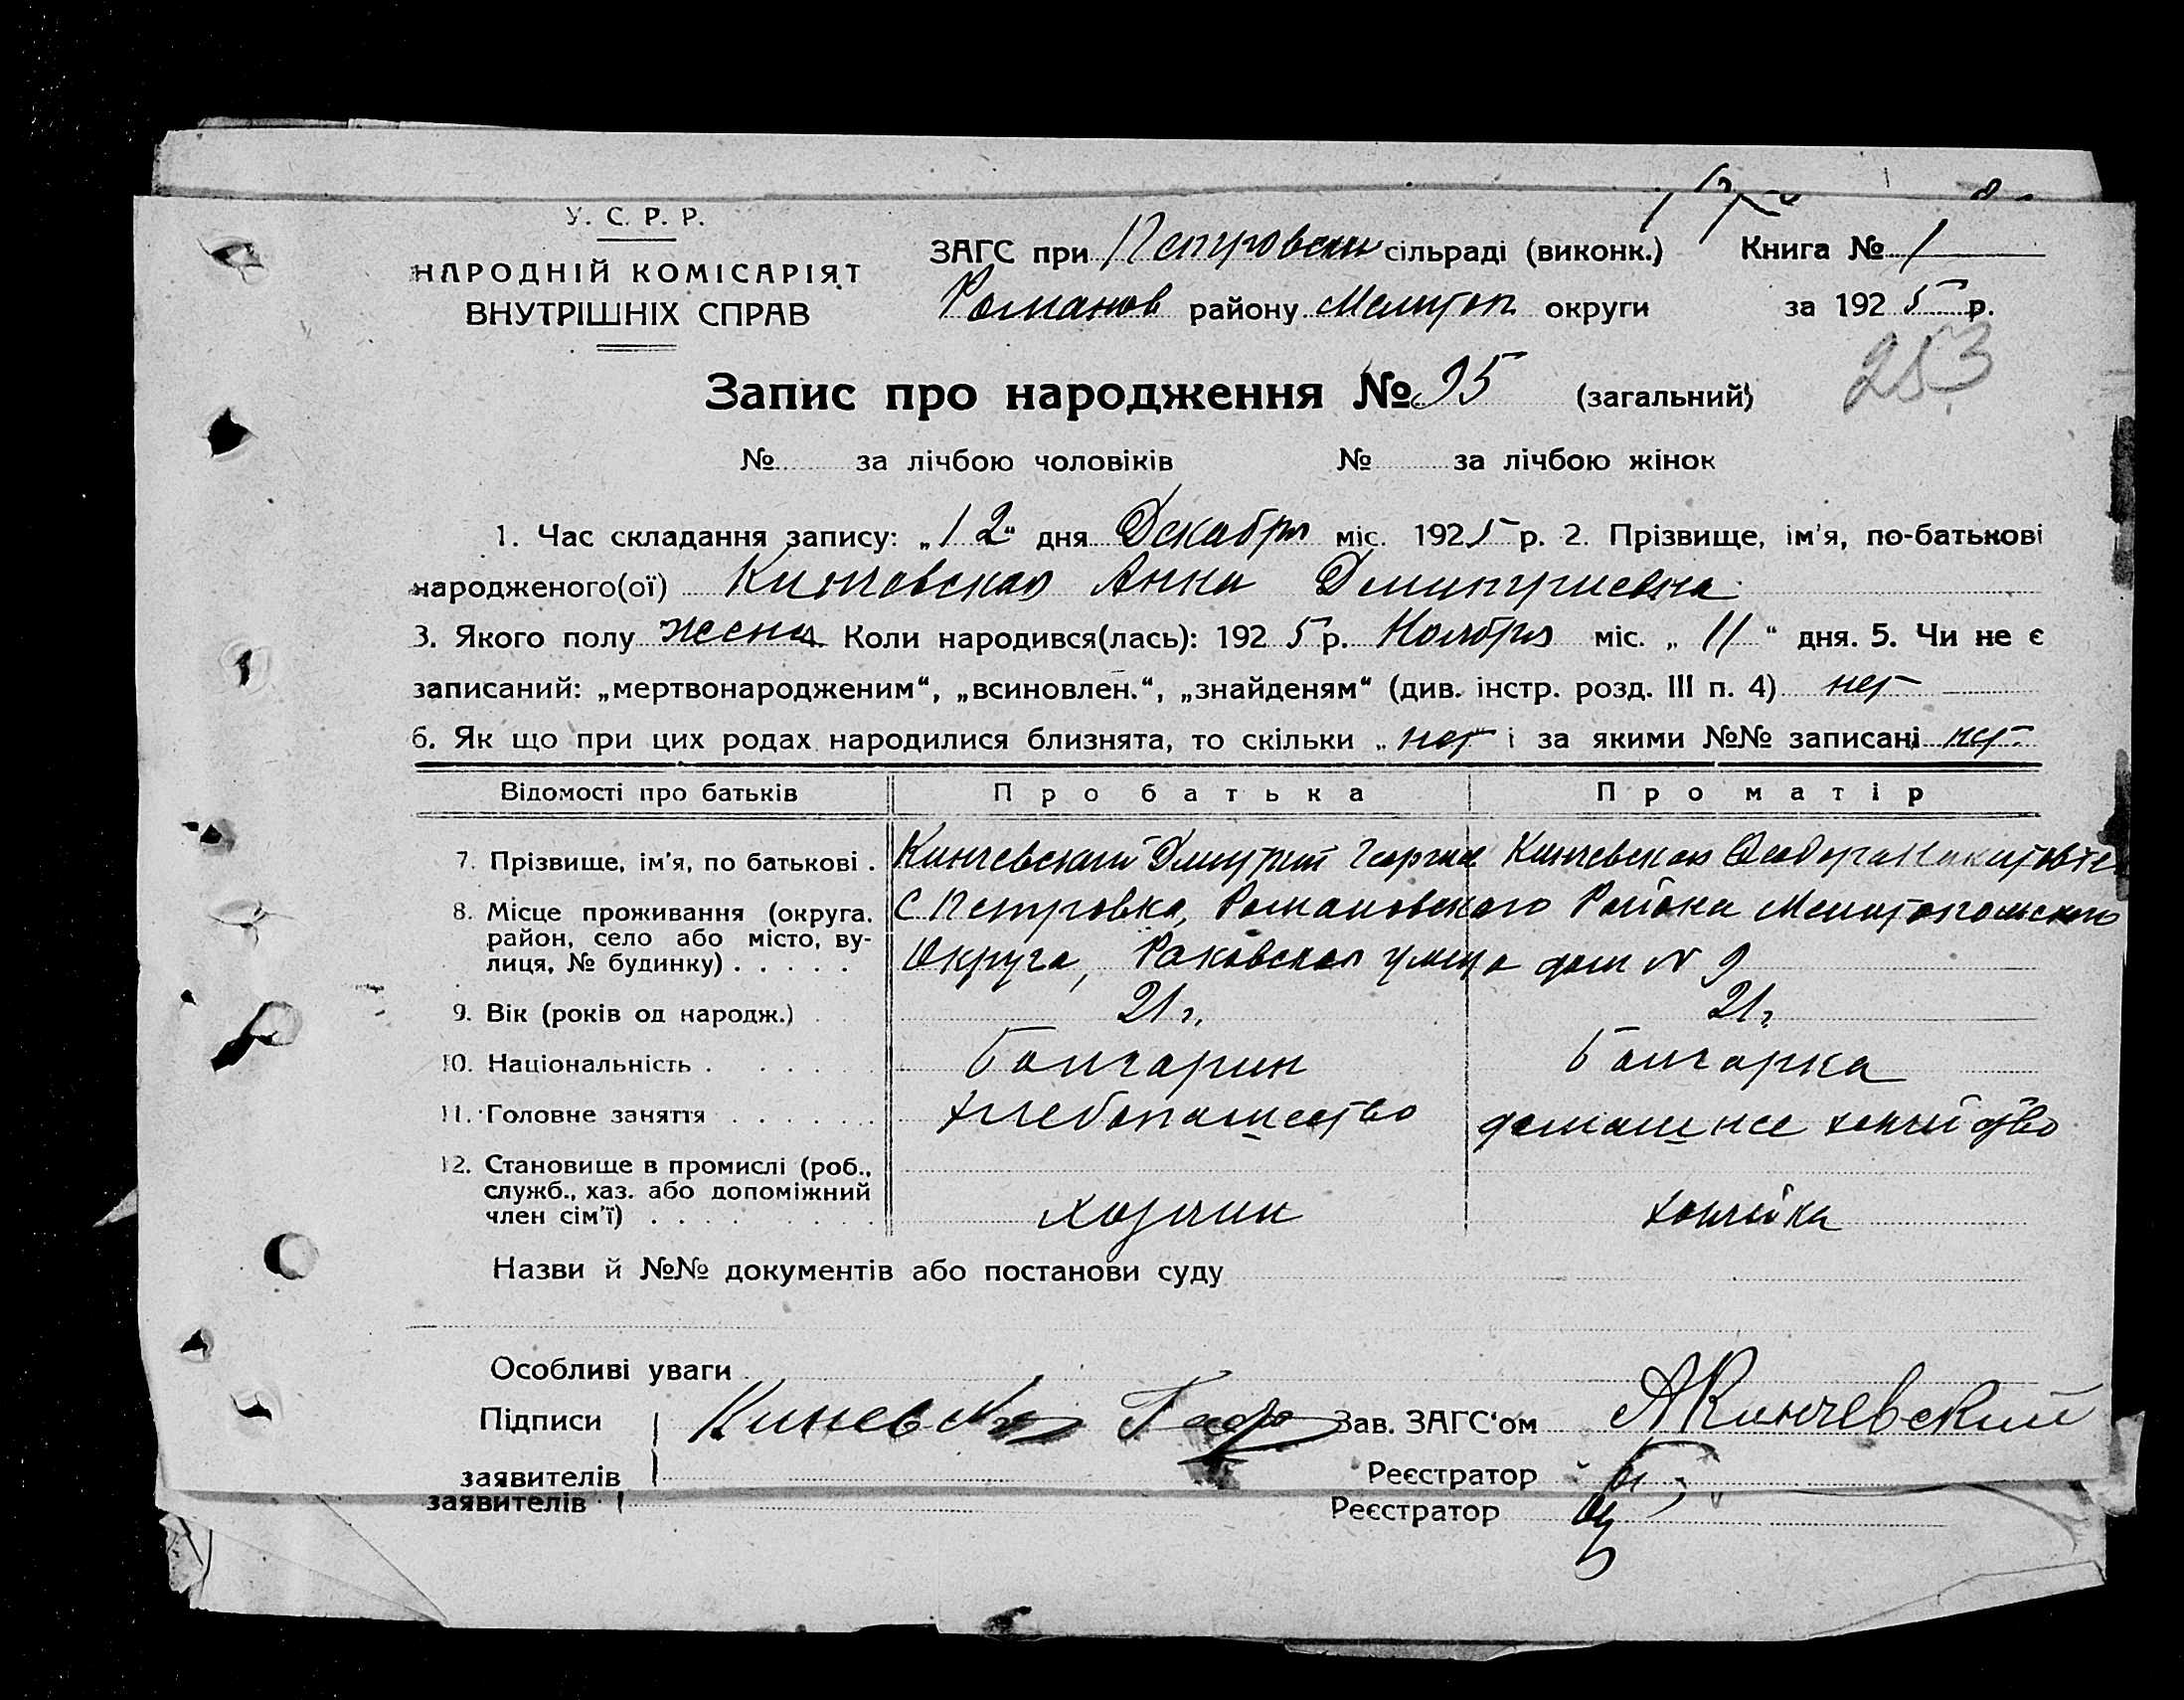 У. С. Р. Р.
НАРОДНІЙ КОМІСАРІЯТ
ВНУТРІШНІХ СПРАВ
ЗАГС при Петровском сільраді (виконк.) Книга № 1
Романов району Мелитоп округи за 1925 р.
253
Запис про народження № 95 (загальний)
№ за лічбою чоловіків № за лічбою жінок
1. Час складання запису: „12“ дня Декабря міс. 1925 р. 2. Прізвище, ім’я, по-батькові
народженого(ої) Анна Дмитриевна
3. Якого полу женс 4. Коли народився(лась): 1925 р. Ноября міс. „11“ дня. 5. Чи не є
записаний: „мертвонародженим“, „всиновлен.“, „знайденям“ (див. інстр. розд. III п. 4) нет
6. Як що при цих родах народилися близнята, то скільки „нет“ і за якими №№ записані нет.
Відомості про батьків Про батька Про матір
7. Прізвище, ім’я, по батькові . Кинчевский Дмитрий Георгие Кинчевская Феодора
8. Місце проживання (округа, район, село або місто, вулиця, № будинку) . . . . . С Петровка, Романовского Района Мелитопольского
Округа, Раковская улица дом № 9
9. Вік (років од народж.) . . 21 г. 21 г.
10. Національність . . . . . . Болгарин Болгарка
11. Головне заняття . . . . . . хлебопашество домашнее хозяйство
12. Становище в промислі (роб., служб., хаз. або допоміжний член сім’ї) . . . . . . хозяин хозяйка
Назви й №№ документів або постанови суду
Особливі уваги
Підписи Зав. ЗАГС‘ом АКинчевский
заявителів Реєстратор
заявителів Реєстратор